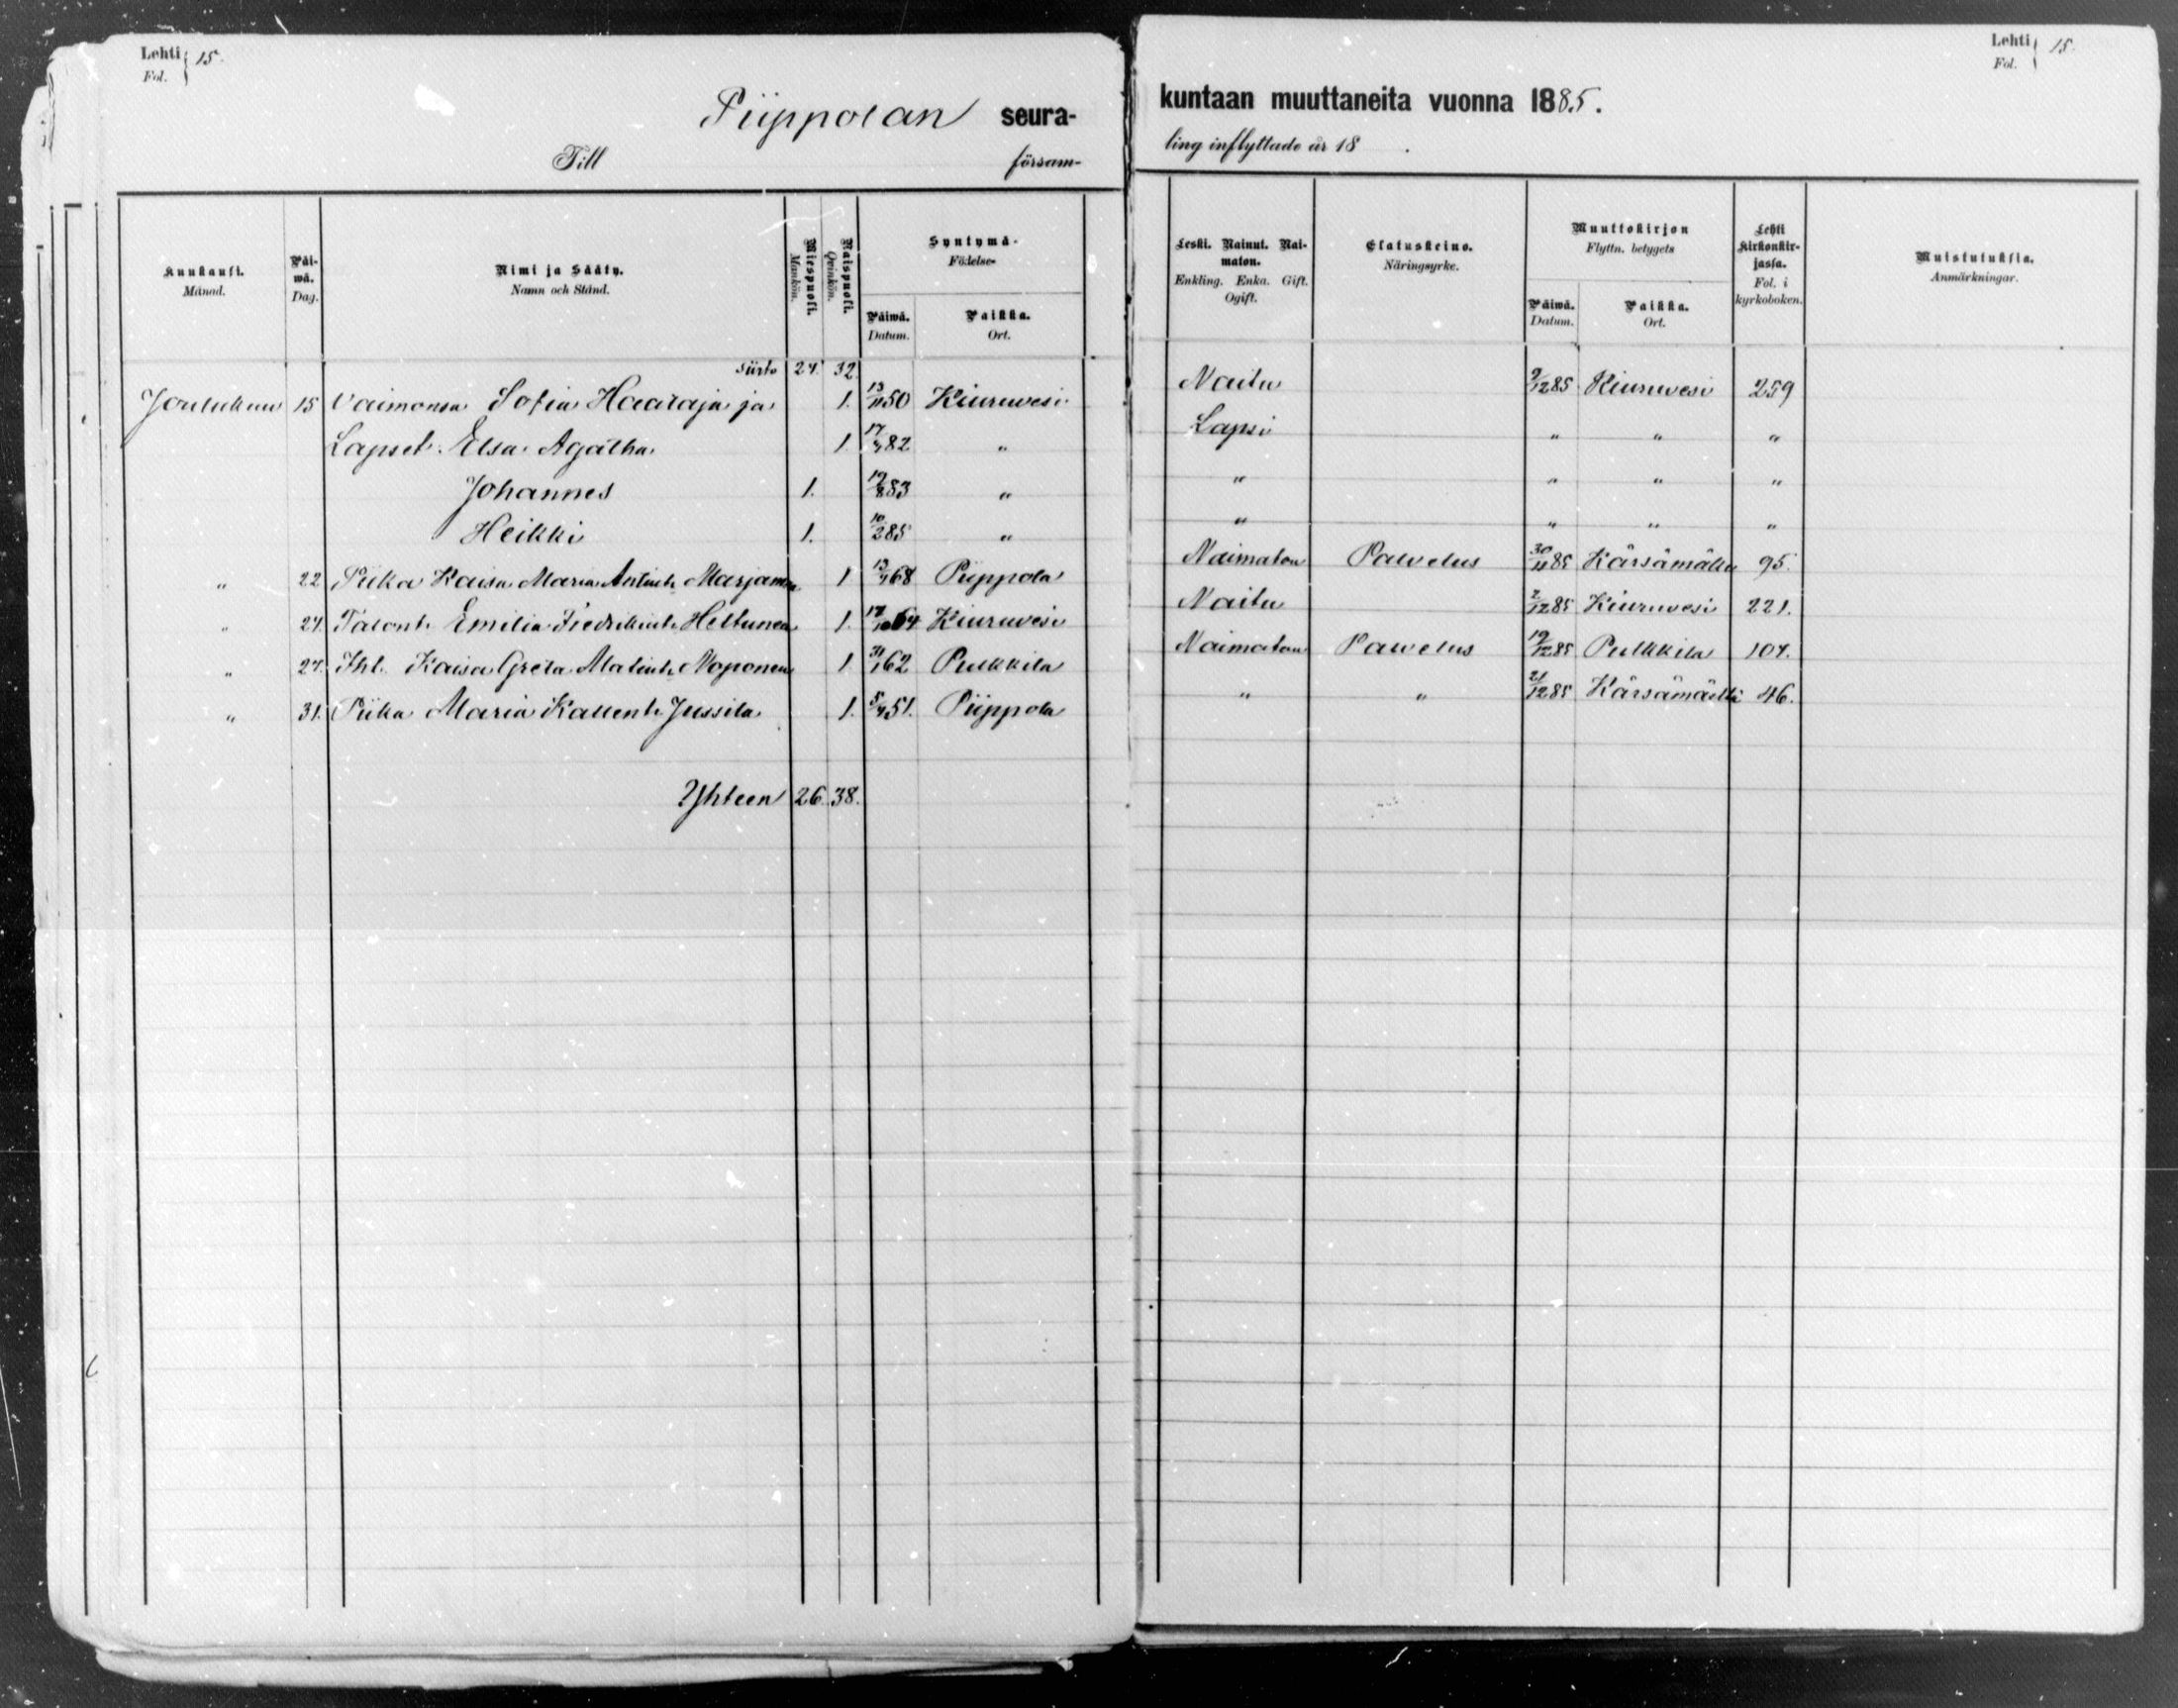 Lehti 15.
Fol.
Piippolan seura-
Till försam-
Kuukausi. Månad.
Päi-wä. Dag.
Nimi ja Sääty. Namn och Stånd.
Miespuoli. Mankön.
Naispuoli. Qvinkön.
Syntymä- Födelse-
Päiwä. Datum.
Paikka. Ort.
Siirto 24. 32.
Joulukuu 15 Vaimonsa Sofia Haaraja ja 1. 13/11 50 Kiuruvesi
Lapset. Elsa Agatha 1. 17/4 82 "
Johannes 1. 19/8 83 "
Heikki 1. 10/2 85 "
" 22 Piika Kaisa Maria Antint. Marjanen 1 13/4 68 Piippola
" 24. Talont. Emilia Fredrikint. Heltunen 1. 17/10 64 Kiuruvesi
" 27. Ihl. Kaisa Greta Matint. Noponen 1 31/1 62 Pulkkila
" 31. Piika Maria Kallent. Jussila 1. 5/4 51. Piippola
Yhteen 26. 38.
Lehti 15.
Fol.
kuntaan muuttaneita vuonna 1885.
ling inflyttade år 18 .
Leski. Nainut. Nai-maton.
Enkling. Enka. Gift. Ogift.
Elatuskeino. Näringsyrke.
Muuttokirjan Flyttn. betygets
Päiwä. Datum.
Paikka. Ort.
Lehti kirkonkir-jassa. Fol. i kyrkoboken.
Muistutuksia. Anmärkningar.
Naitu 9/12 85 Kiuruvesi 259
Lapsi " " "
" " " "
" " " "
Naimaton Palvelus 30/11 85 Kärsämäki 95.
Naitu 2/12 85 Kiuruvesi 221.
Naimaton Palvelus 19/12 85 Pulkkila 104.
" " 21/12 85 Kärsämäki 46.